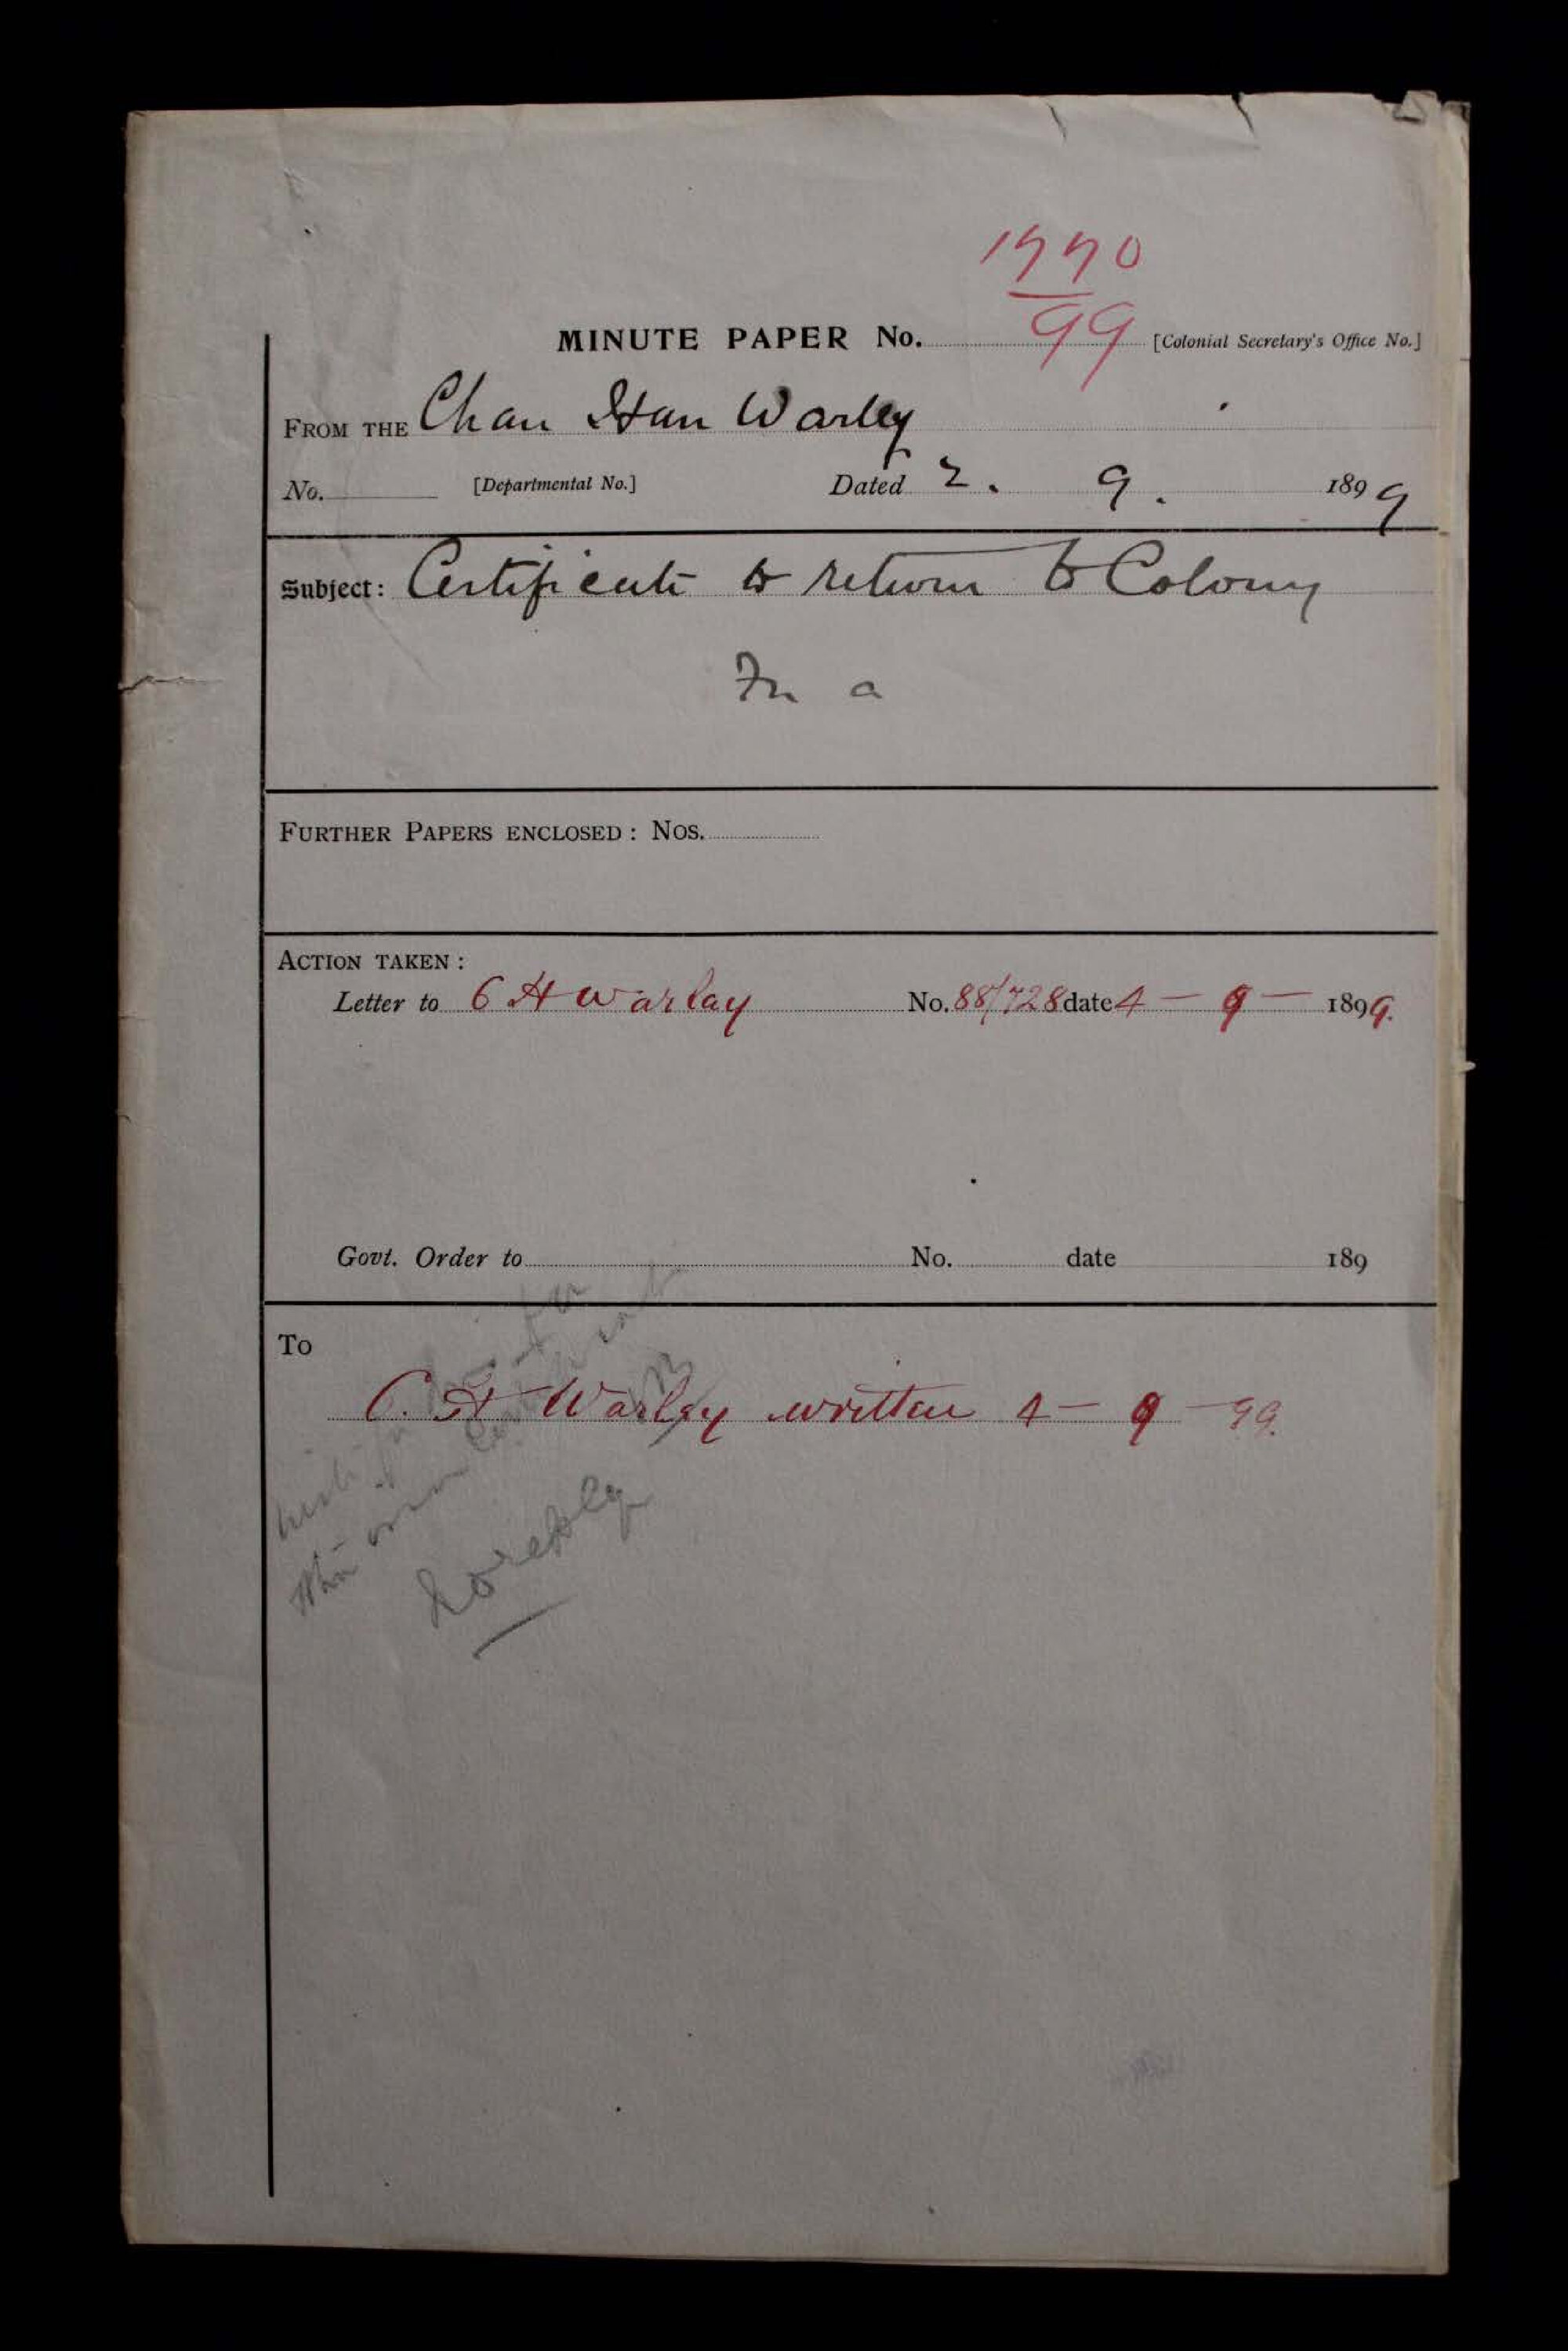 1770
99
MINUTE PAPER No. [Colonial Secretary's Office No.]
FROM THE Chan Han Warley
No. [Departmental No.] Dated 2. 9. 1899
Subject: Certificate to return to Colony
a
FURTHER PAPERS ENCLOSED: Nos.
ACTION TAKEN:
Letter to C H Warlay No. 88/728 date 4 - 9 - 1899.
Govt. Order to No. date 189
To
C. H Warley written 4 - 9 - 99.